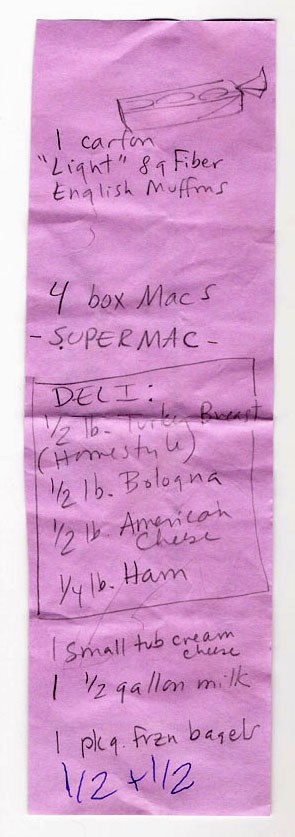 1 carton
"Light" 8g Fiber
English Muffins
4 box Macs
- SUPERMAC -
DELI:
1/2 lb. Turkey Breast
(Homestyle)
1/2 lb. Bologna
1/2 lb. American
Cheese
1/4 lb. Ham
1 small tub cream
cheese
1 1/2 gallon milk
1 pkg. frzn bagels
1/2 + 1/2